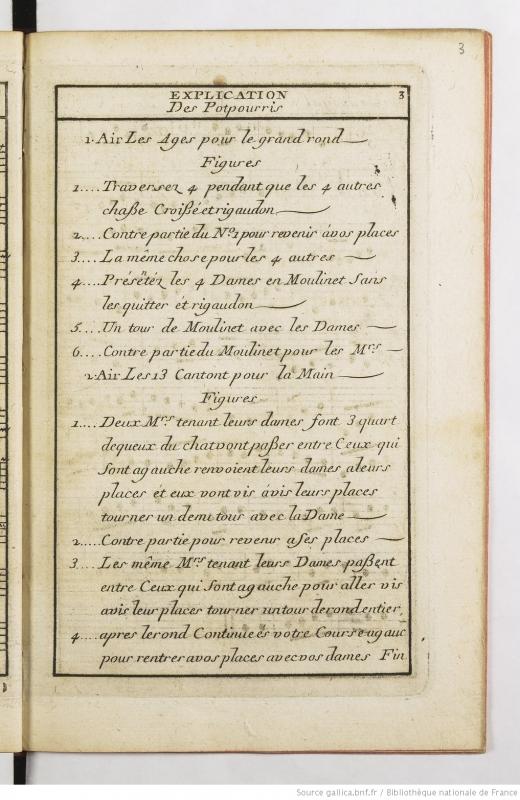 3
EXPLICATION 3
Des Potpourris
1. Air Les Ages pour le grand rond
Figures
1.... Traversez 4 pendant que les 4 autres
chaße Croißé et rigaudon
2.... Contre partie du No. 1 pour revenir à vos places
3.... La même chose pour les 4 autres
4.... Présétéz les 4 Dames en Moulinet Sans
les quitter ét rigaudon
5.... Un tour de Moulinet avec les Dames
6.... Contre partie du Moulinet pour les Mrs
2. Air Les 13 Cantont pour la Main
Figures
1.... Deux Mrs tenant leurs dames font 3 quart
de queux du chat vont paßer entre Ceux qui
Sont agauche renvoient leurs dames a leurs
places ét eux vont vis ávis leurs places
tourner un demi tour avec la Dame
2.... Contre partie pour revenir a Ses places
3.... Les même Mrs tenant leurs Dames paßent
entre Ceux qui Sont agauche pour aller vis
avis leur places tourner un tour de rond entier
4.... apres le rond Continuéés votre Course agauc
pour rentrer avos places avec vos dames Fin
Source gallica.bnf.fr / Bibliothèque nationale de France